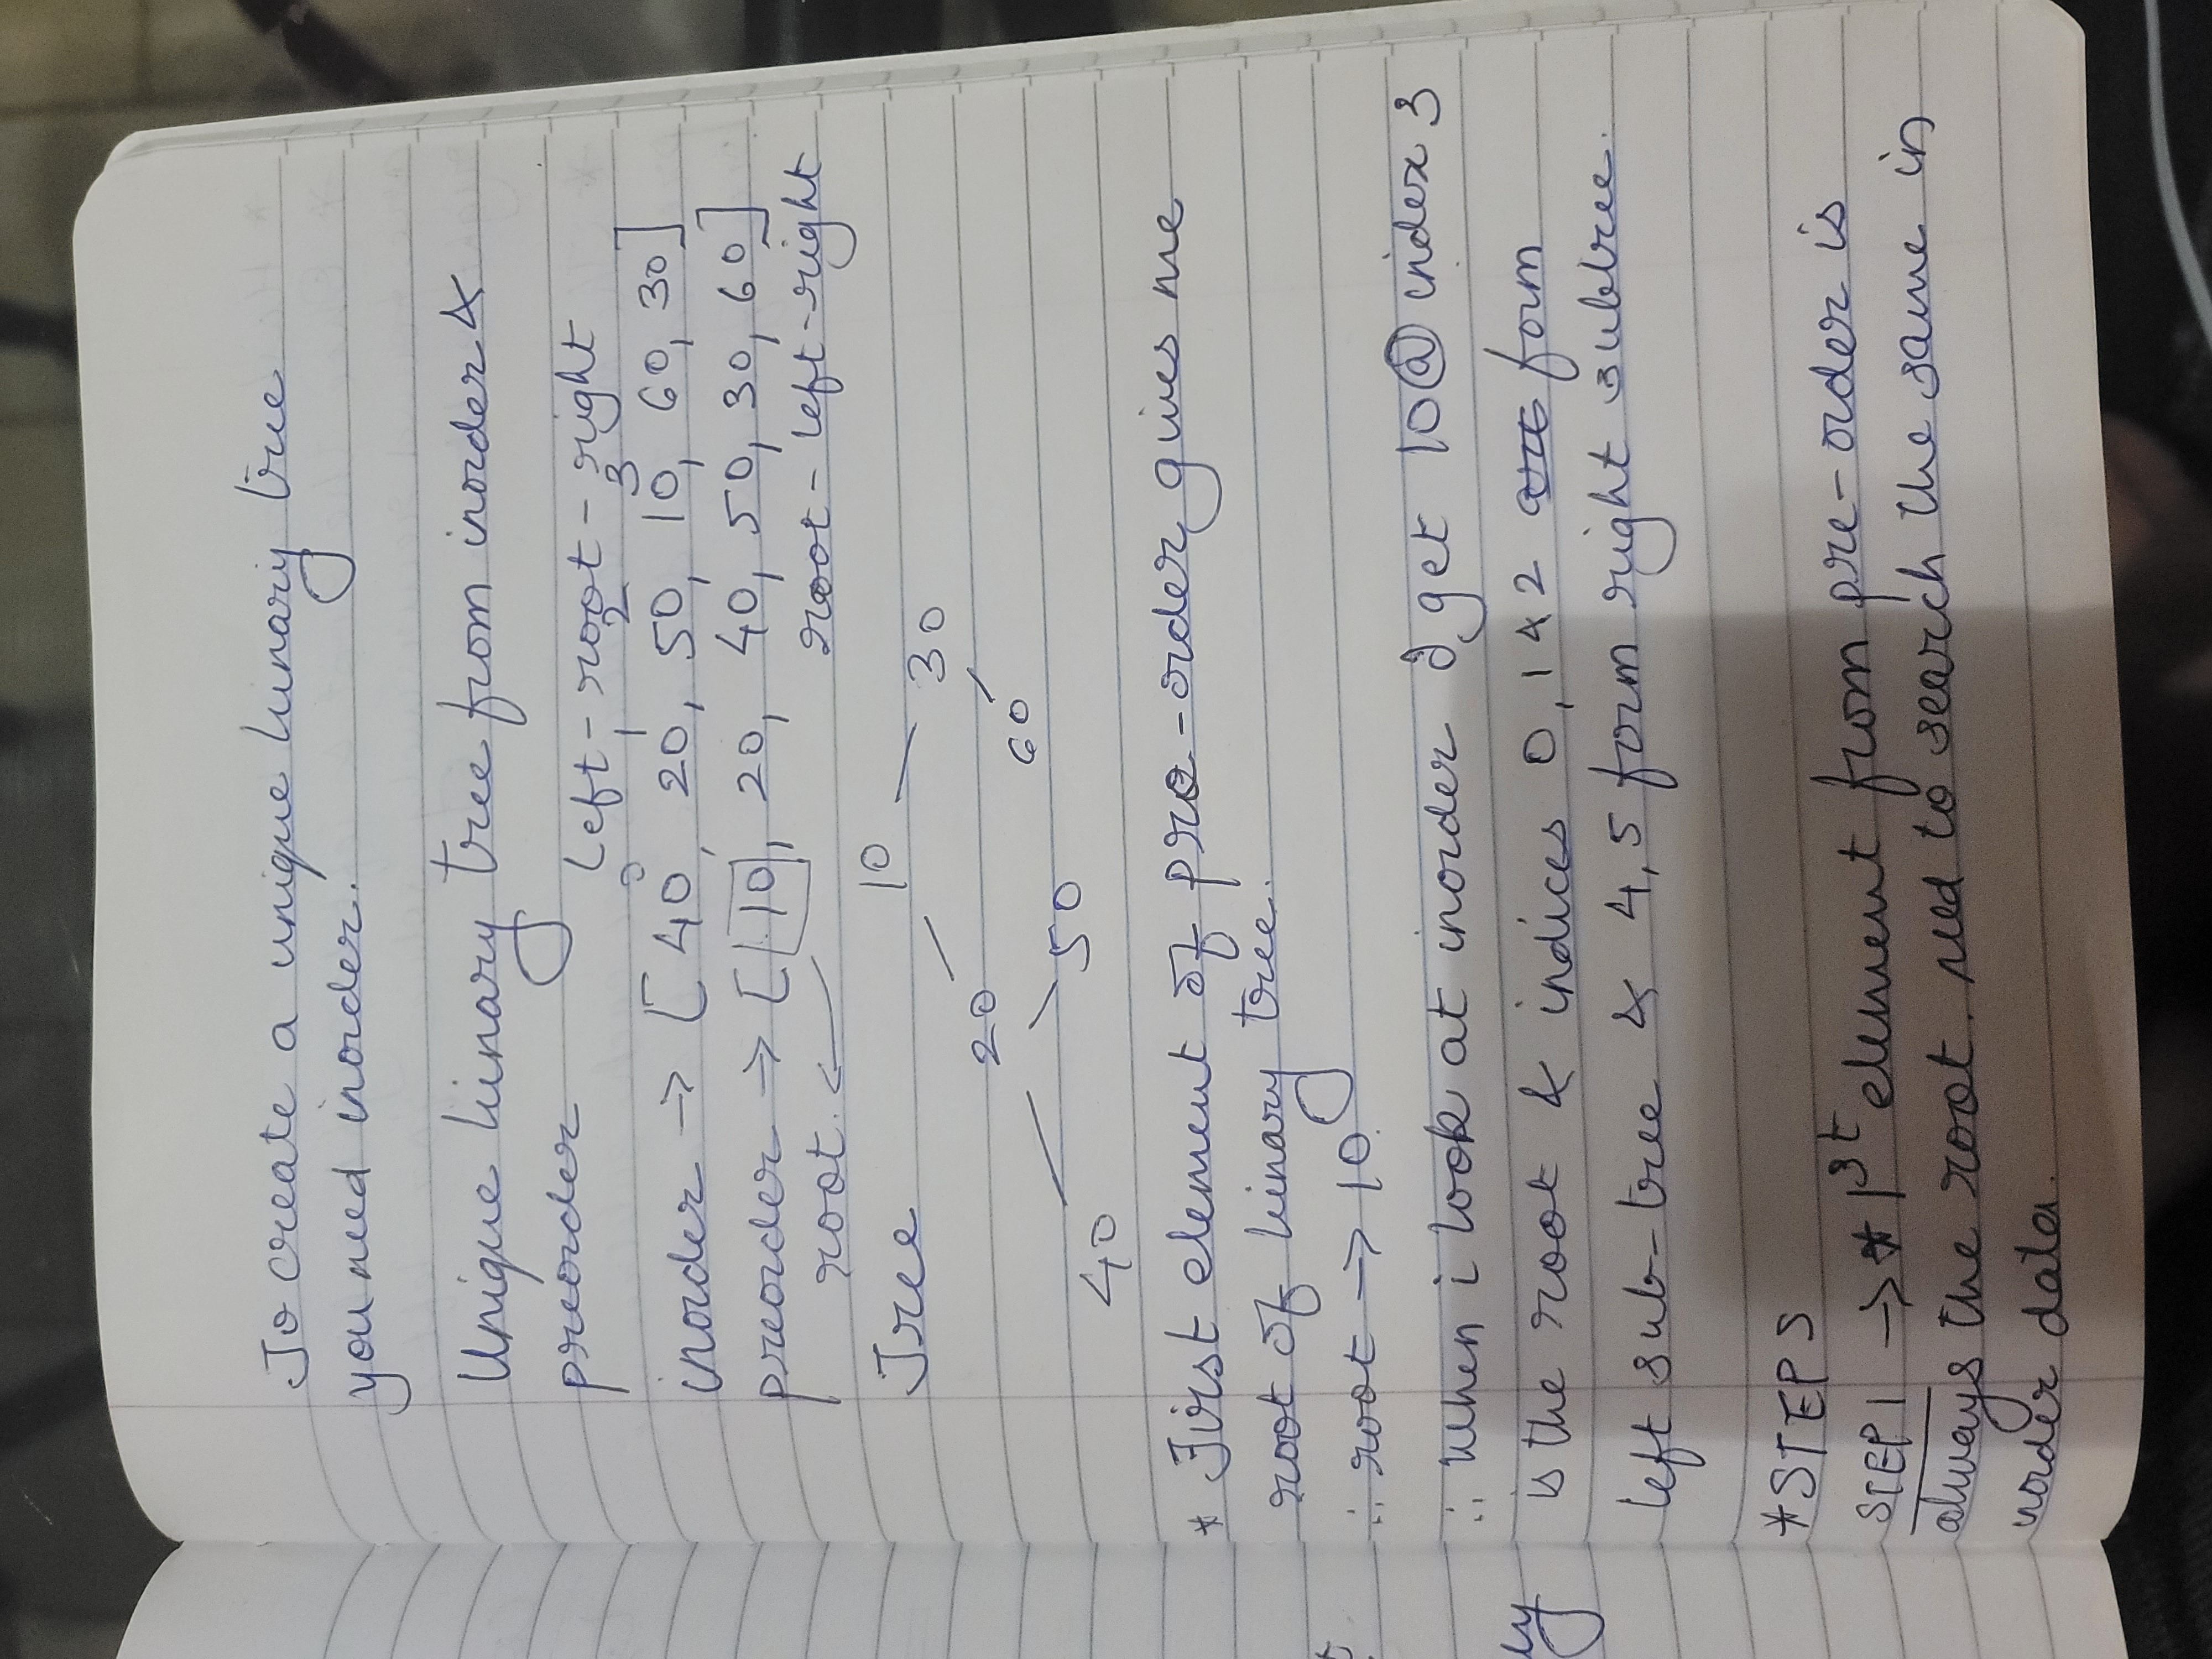 To create a unique binary tree
you need inorder.
Unique binary tree from inorder &
preorder
left - root - right
0 1 2 3
inorder → [ 40, 20, 50, 10, 60, 30]
preorder → [ 10, 20, 40, 50, 30, 60]
root. ← root - left - right
Tree
10
30
20
60
50
40
* First element of pre-order gives me
root of binary tree.
∴ root → 10
∴ When i look at inorder I get 10 @ index 3
is the root & indices 0, 1 & 2 are form
left sub-tree & 4, 5 form right subtree.
* STEPS
STEP 1 → * 1st element from pre-order is
always the root. need to search the same in
inorder data.
ly